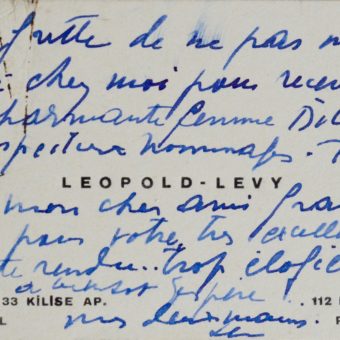 grette de ne pas
chez moi pour recev
charmante femme
spectueux hommages.
LEOPOLD-LEVY
mon cher ami
pour votre très excelle
te rendu.. trop élogie
a bientot j'espère..
33 KİLİSE AP. 112
L mes deux mains. P